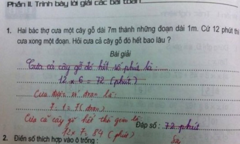 Phần II. Trình bày lời giải các bài toán
1. Hai bác thợ cưa một cây gỗ dài 7m thành những đoạn dài 1m. Cứ 12 phút thì
cưa xong một đoạn. Hỏi cưa cả cây gỗ đó hết bao lâu ?
Bài giải
Cưa cả cây gỗ đó hết số phút là:
12 x 6 = 72 (phút)
Cưa được số đoạn là:
7 : 1 = 7 (đoạn)
Cưa cả cây gỗ hết thời gian là:
Đáp số: 72 phút
12 x 7 = 84 (phút)
2. Điền số thích hợp vào ô trống